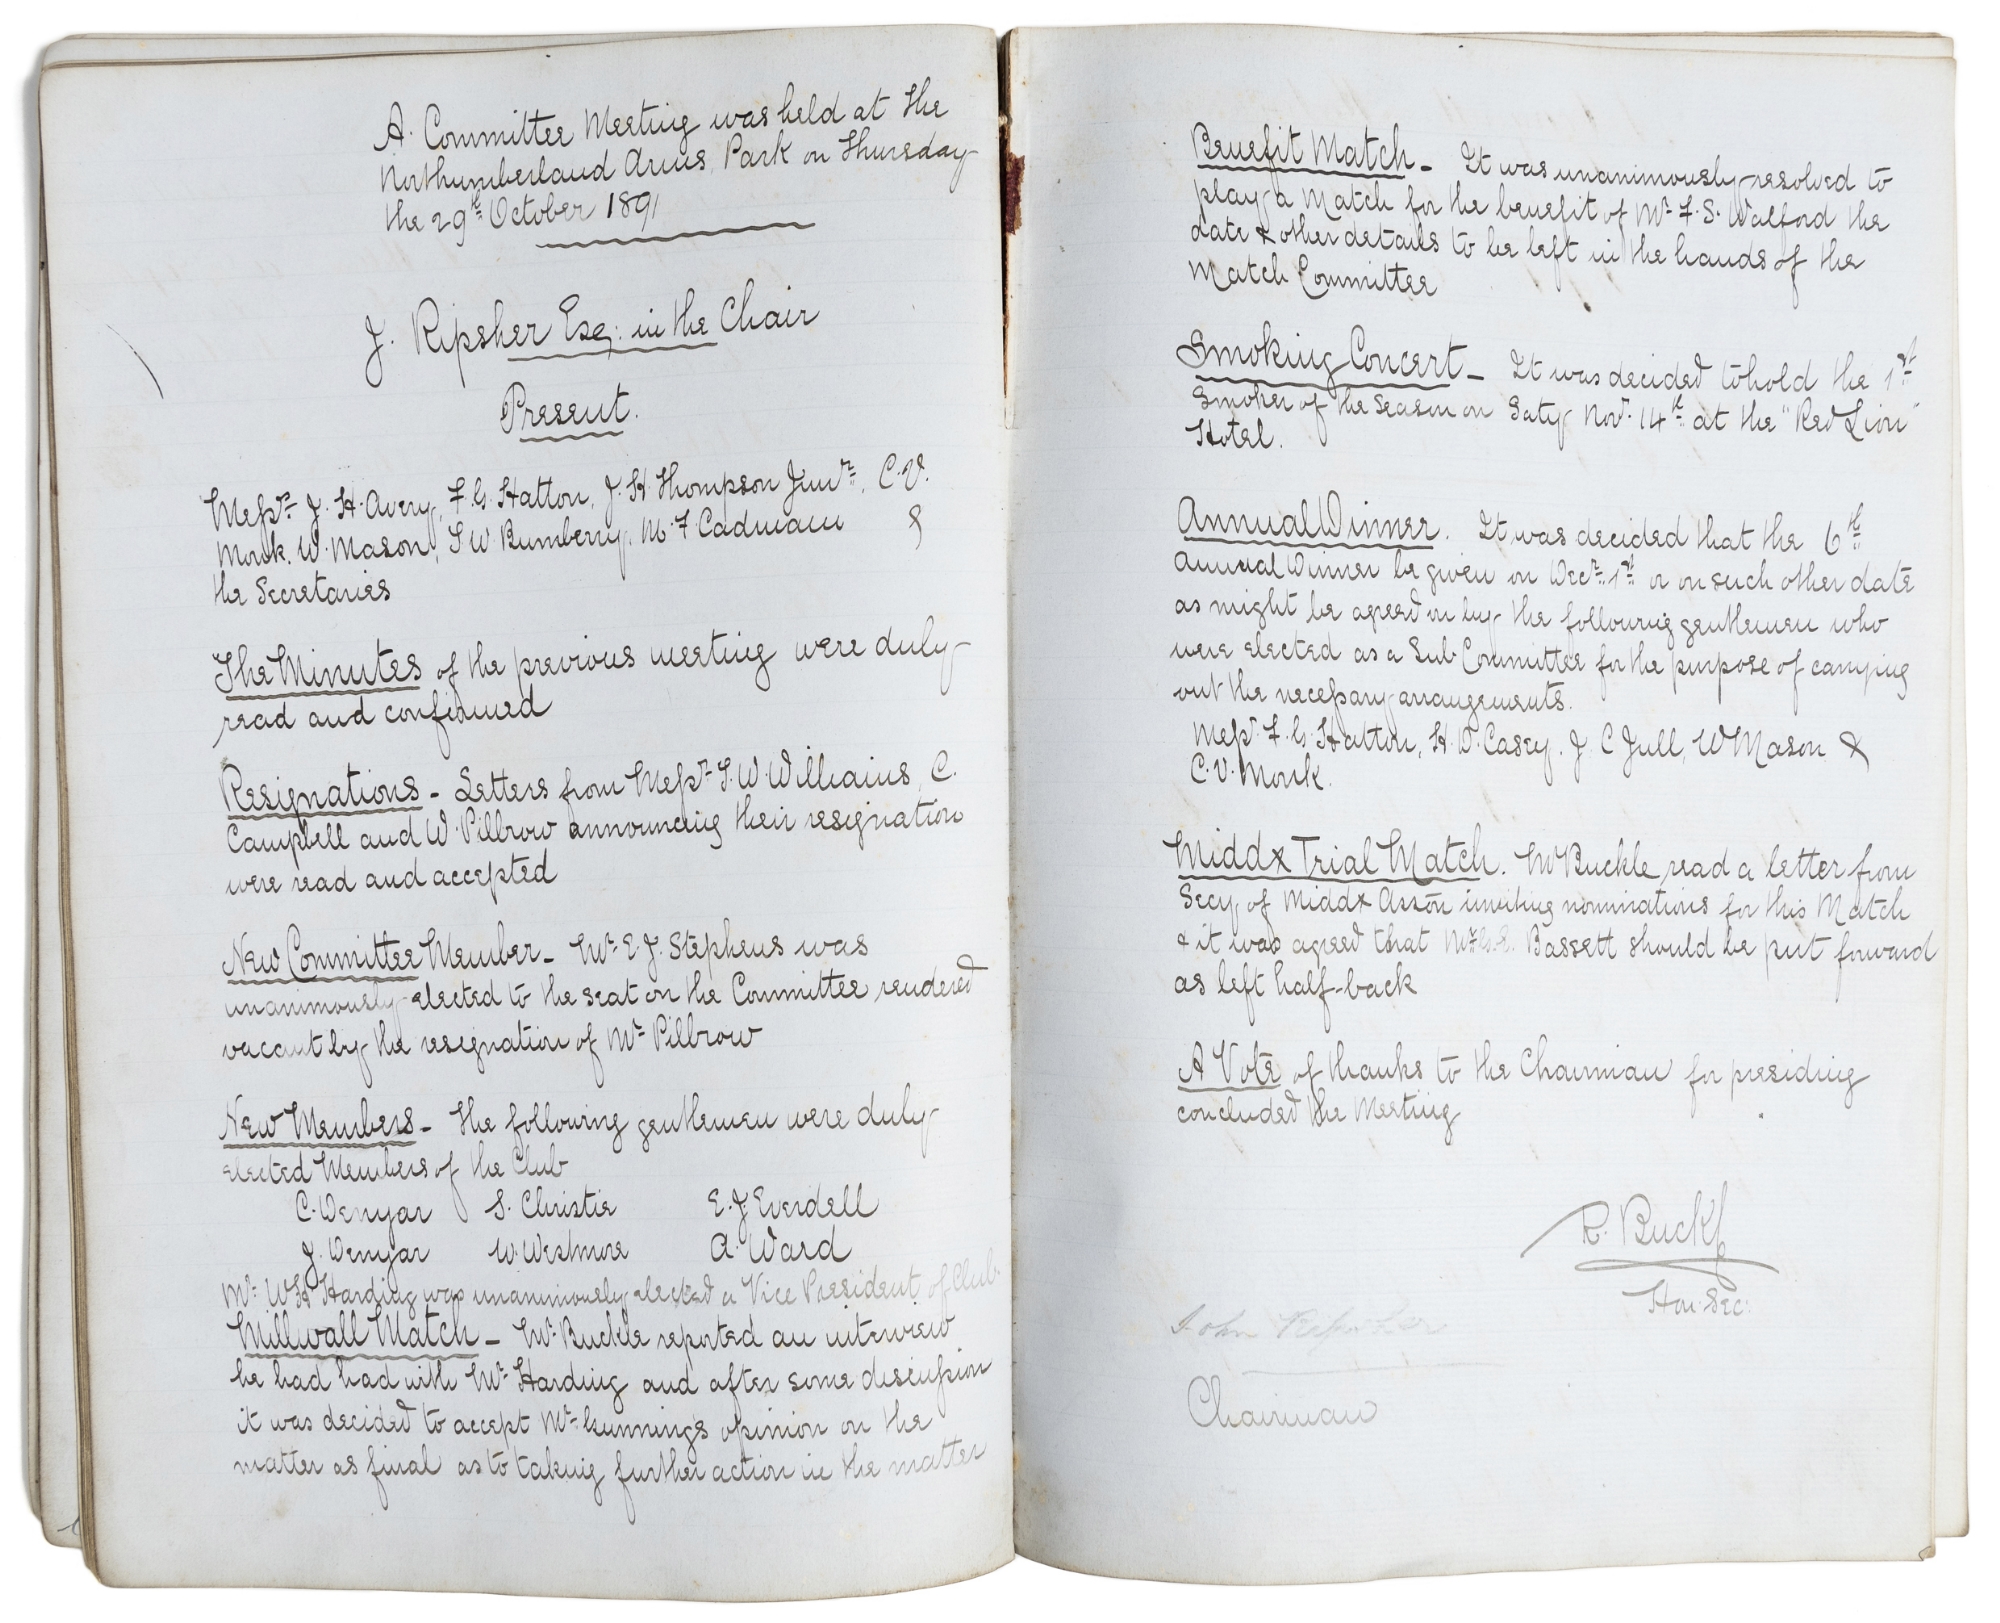 A Committee Meeting was held at the
Northumberland Arms, Park on Thursday
the 29th October 1891
J. Ripsher Esq: in the Chair
Present.
Messrs J. H. Avery, F. G. Hatton, J. H. Thompson Junr, C. V.
Monk. W. Mason, T W Bumberry, M. F. Cadman &
the Secretaries
The Minutes of the previous meeting were duly
read and confirmed
Resignations - Letters from Messrs T. W. Williams, C.
Campbell and W. Pilbrow announcing their resignation
were read and accepted
New Committee Member - Mr E J. Stephens was
unanimously elected to the seat on the Committee rendered
vacant by the resignation of Mr Pilbrow
New Members - The following gentlemen were duly
elected Members of the Club
C. Denyar S. Christie E. J. Everdell
J. Denyar W. Westmore A. Ward
Mr W H Harding was unanimously elected a Vice President of Club
Millwall Match - Mr Buckle reported an interview
he had had with Mr Harding and after some discussion
it was decided to accept Mr Gunnings opinion on the
matter as final as to taking further action in the matter
Benefit Match - It was unanimously resolved to
play a Match for the benefit of Mr F. S. Walford the
date & other details to be left in the hands of the
Match Committee
Smoking Concert - It was decided to hold the 1st
Smoker of the Season on Saty Novr. 14th at the "Red Lion"
Hotel.
Annual Dinner. It was decided that the 6th
Annual Dinner be given on Decr. 1st or on such other date
as might be agreed on by the following gentlemen who
were elected as a Sub Committee for the purpose of carrying
out the necessary arrangements.
Messr F. G. Hatton, H. D. Casey. J C Jull, W Mason &
C. V. Monk.
Middx Trial Match. Mr Buckle read a letter from
Secy of Middx Asson inviting nominations for this Match
& it was agreed that Mr Bassett should be put forward
as left half-back
A Vote of thanks to the Chairman for presiding
concluded the Meeting
R. Buckle
Hon. Sec.
John Ripsher
Chairman